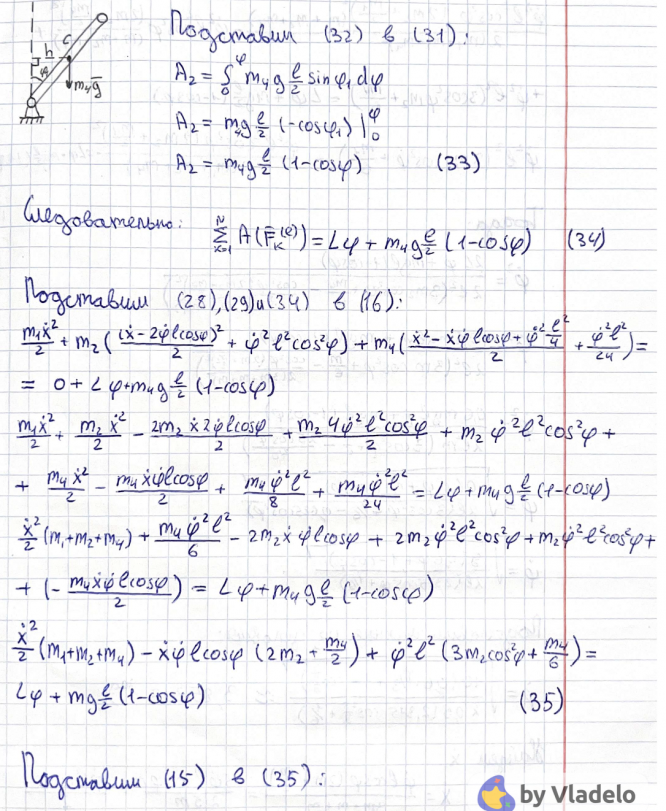 Подставим (32) в (31):
A₂ = ∫₀^φ m₄g ℓ/2 sinφ₁ dφ
A₂ = m₄g ℓ/2 (-cosφ₁) |₀^φ
A₂ = m₄g ℓ/2 (1-cosφ) (33)
h C φ m₄g̅
Следовательно: Σ_{k=1}^{N} A(F̅_k^{(e)}) = Lφ + m₄g ℓ/2 (1-cosφ) (34)
Подставим (28),(29)и(34) в (16):
m₁ẋ²/2 + m₂((ẋ - 2φ̇ℓcosφ)²/2 + φ̇²ℓ²cos²φ) + m₄((ẋ² - ẋφ̇ℓcosφ + φ̇² ℓ²/4)/2 + φ̇²ℓ²/24) =
= 0 + Lφ + m₄g ℓ/2 (1-cosφ)
m₁ẋ²/2 + m₂ẋ²/2 - 2m₂ẋ2φ̇ℓcosφ/2 + m₂4φ̇²ℓ²cos²φ/2 + m₂φ̇²ℓ²cos²φ +
+ m₄ẋ²/2 - m₄ẋφ̇ℓcosφ/2 + m₄φ̇²ℓ²/8 + m₄φ̇²ℓ²/24 = Lφ + m₄g ℓ/2 (1-cosφ)
ẋ²/2 (m₁+m₂+m₄) + m₄φ̇²ℓ²/6 - 2m₂ẋφ̇ℓcosφ + 2m₂φ̇²ℓ²cos²φ + m₂φ̇²ℓ²cos²φ +
+ (- m₄ẋφ̇ℓcosφ/2) = Lφ + m₄g ℓ/2 (1-cosφ)
ẋ²/2 (m₁+m₂+m₄) - ẋφ̇ℓcosφ (2m₂ + m₄/2) + φ̇²ℓ² (3m₂cos²φ + m₄/6) =
Lφ + mg ℓ/2 (1-cosφ) (35)
Подставим (15) в (35):
by Vladelo